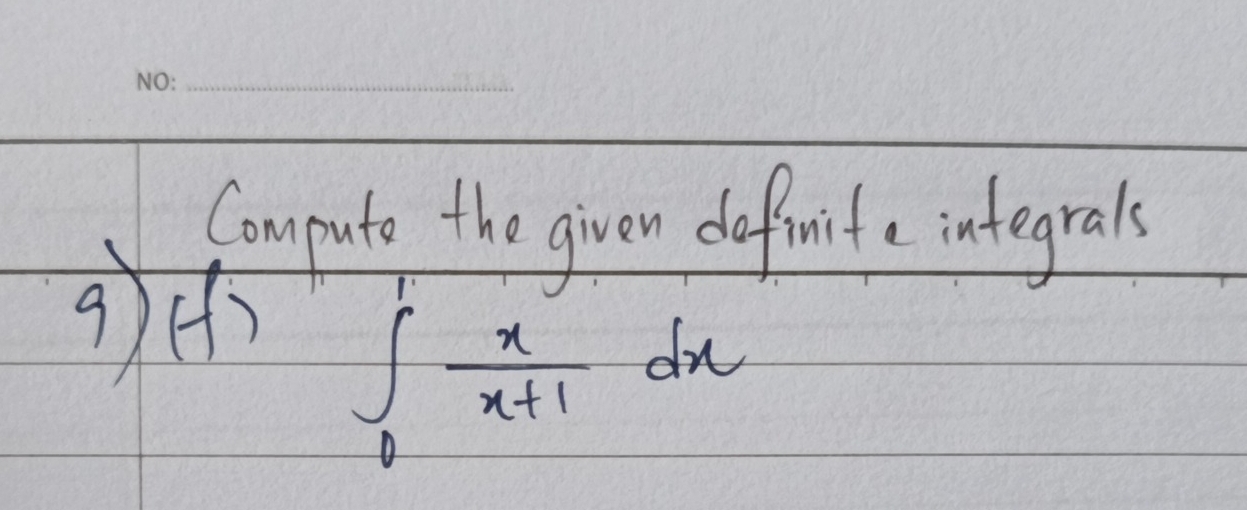 NO:
Compute the given definite integrals
9) (f) ∫₀¹ x/(x+1) dx